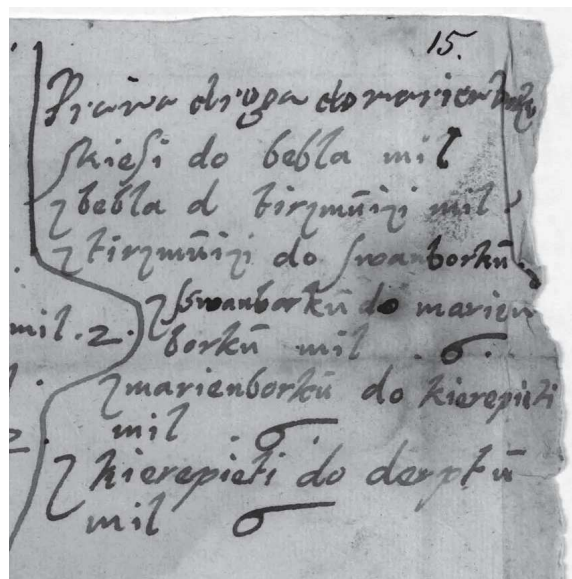 15.
Prawa droga do marienburku
skiesi do bebla mil
z bebla d tirzmūizi mil
z tirzmūizi do swanborkū
mil. 2. z swanborkū do marien
borkū mil . 6 .
z marienborkū do kierepieti
mil . 6 .
z kierepieti do derptū
mil 6